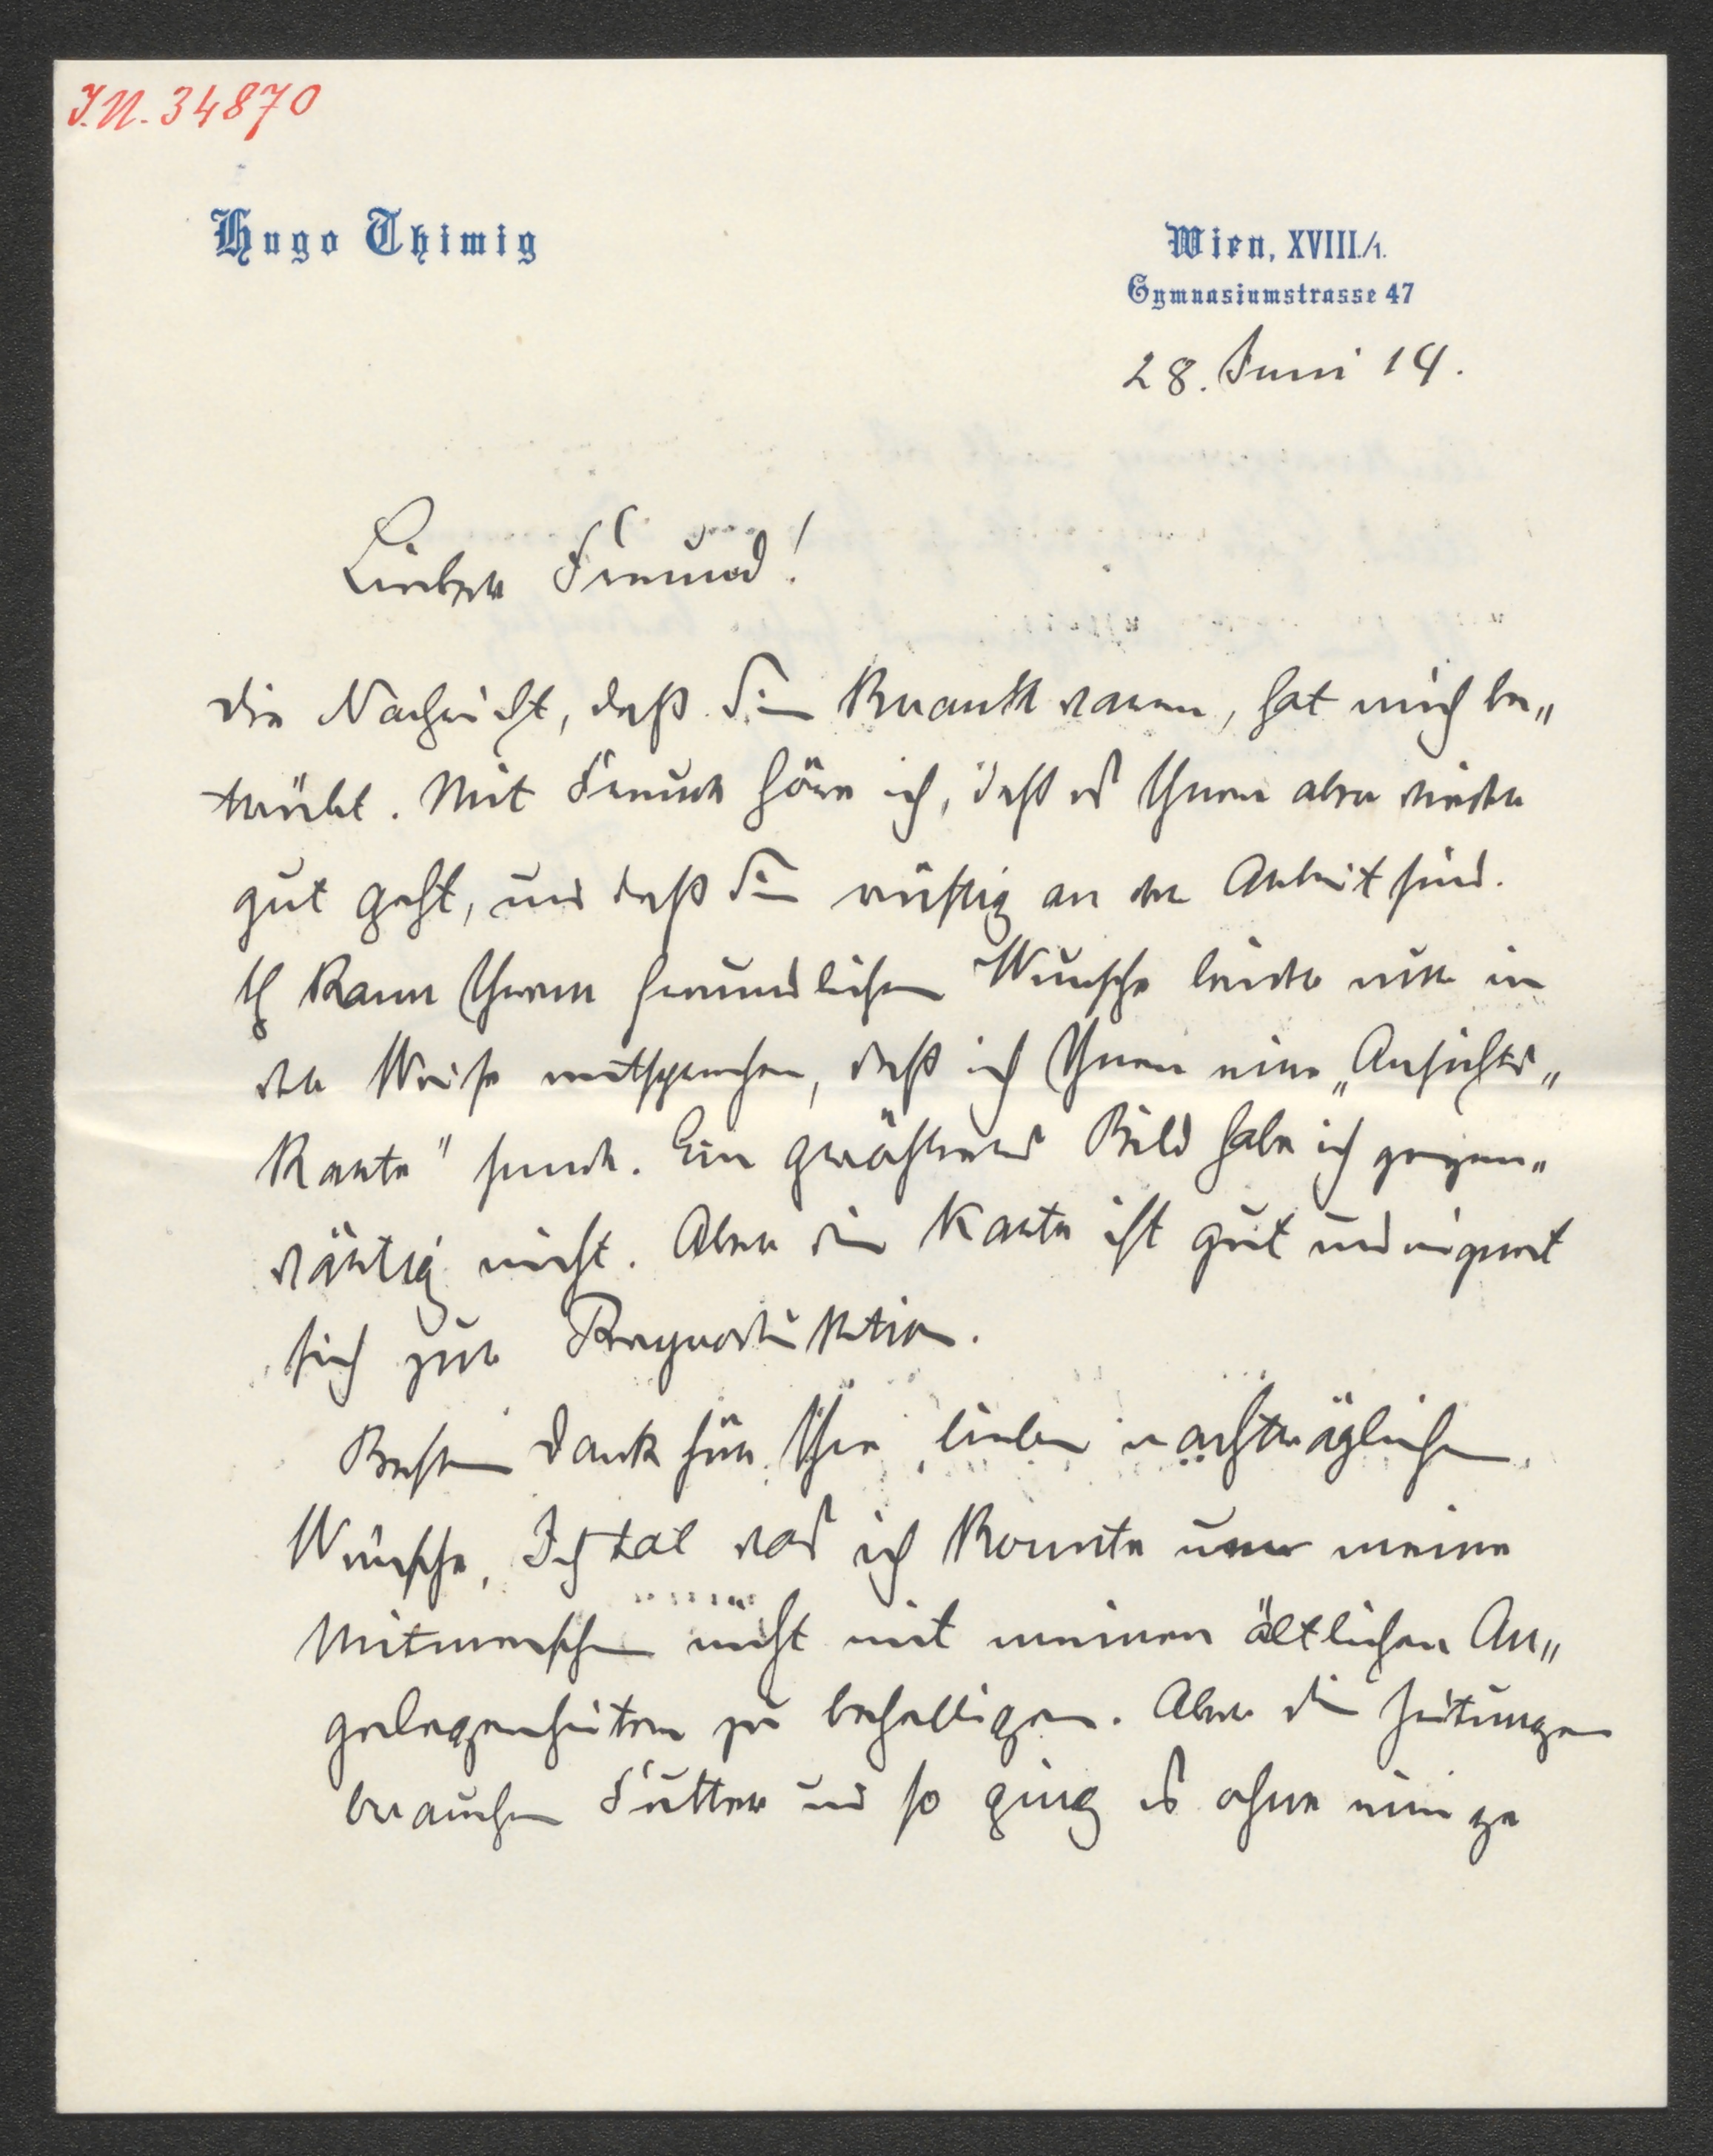 I.N. 34870
Hugo Thimig
Wien, XVIII./1.
Gymnasiumstrasse 47
28. Juni 14.
Lieber Freund!
die Nachricht, daß Sie krank waren, hat mich be„
trübt. Mit Freude höre ich, daß es Ihnen aber wieder
gut geht, und daß Sie rüstig an der Arbeit sind.
Ich kann Ihrem freundlichen Wunsche leider nur in
der Weise entsprechen, daß ich Ihnen eine „Ansichts„
karte" sende. Ein größeres Bild habe ich gegen„
wärtig nicht. Aber die Karte ist gut und eignet
sich zur Reproduktion.
Besten Dank für Ihre lieben nachträglichen
Wünsche. Ich tat was ich konnte um meine
Mitmenschen nicht mit meinen ältlichen An„
gelegenheiten zu behelligen. Aber die Zeitungen
brauchen Futter und so ging es ohne einige